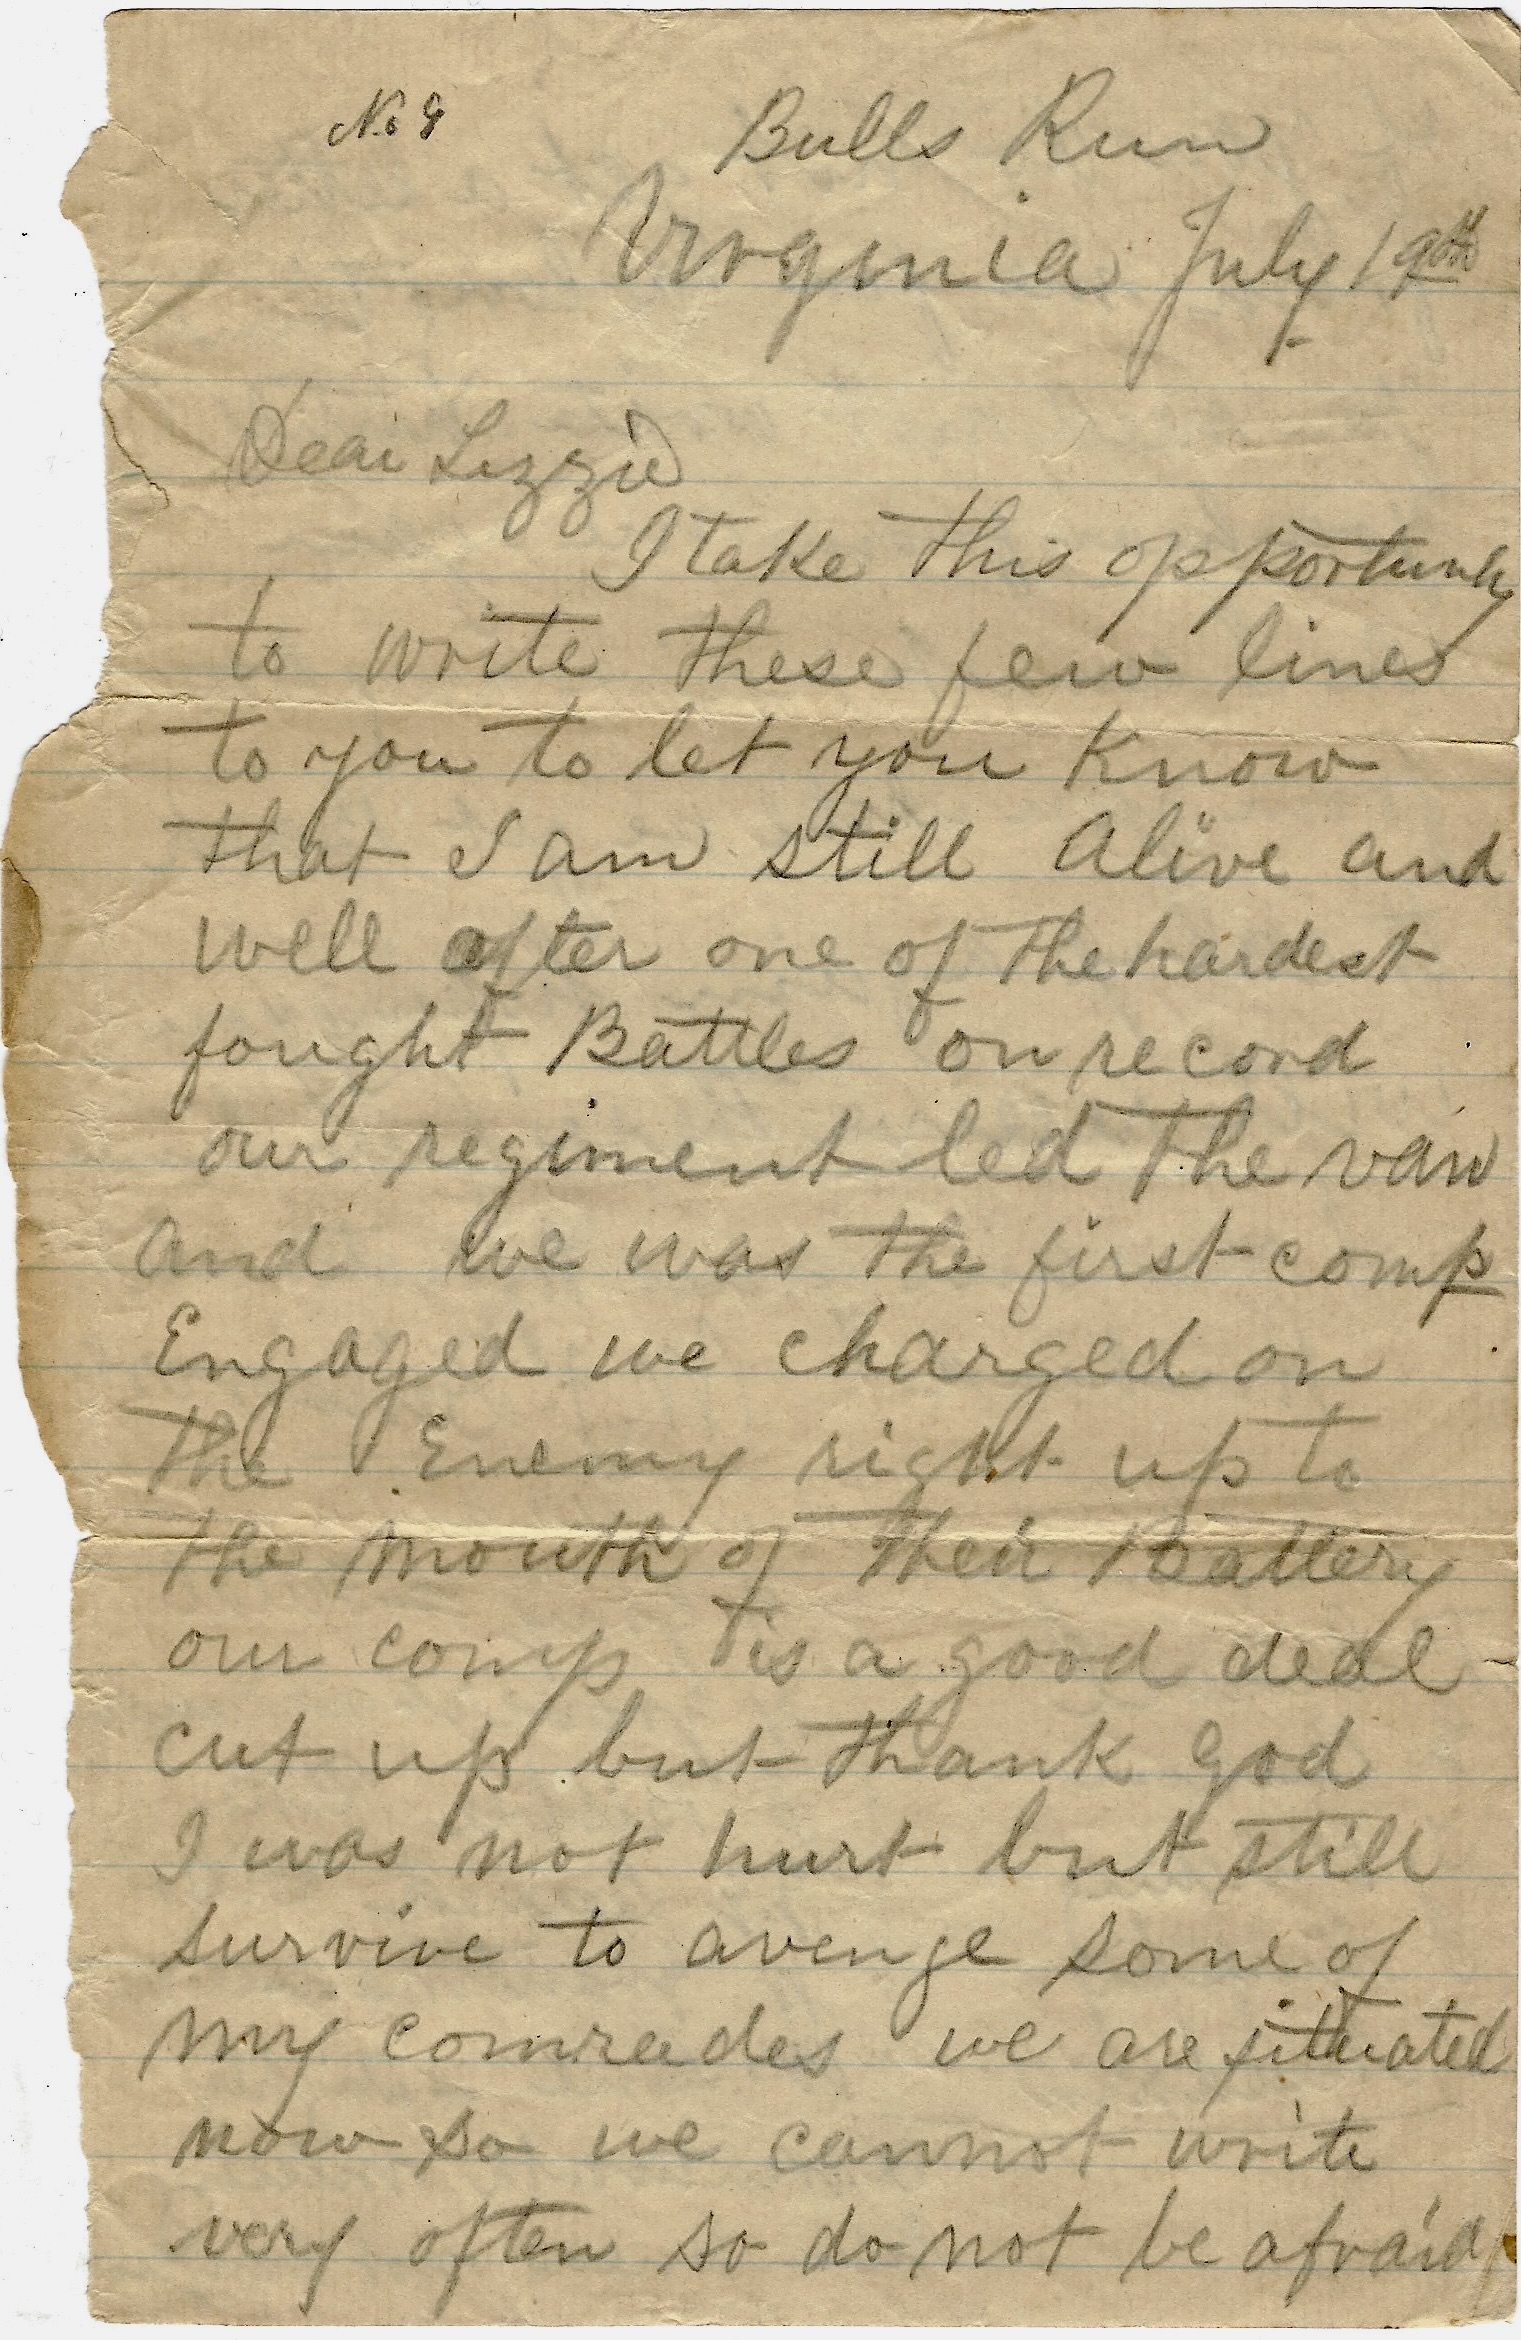 No 9
Bulls Run
Virginia July 19th
Dear Lizzie
I take this opportunity
to write these few lines
to you to let you Know
that I am still Alive and
well after one of the hardest
fought Battles on record
our regiment led the van
and we was the first comp
Engaged we charged on
the Enemy right up to
the mouth of their Battery
our comp is a good deal
cut up but thank God
I was not hurt but still
survive to avenge some of
my comrades we are situated
now so we cannot write
very often so do not be afraid